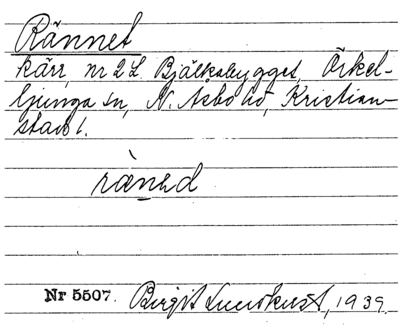 Rännet
kärr, nr 2 L. Bjälkabygget, Örkel-
ljunga sn, N. Åsbo hd, Kristian-
stads l.
rænəd
Nr 5507. Birgit Lundkvist, 1939.